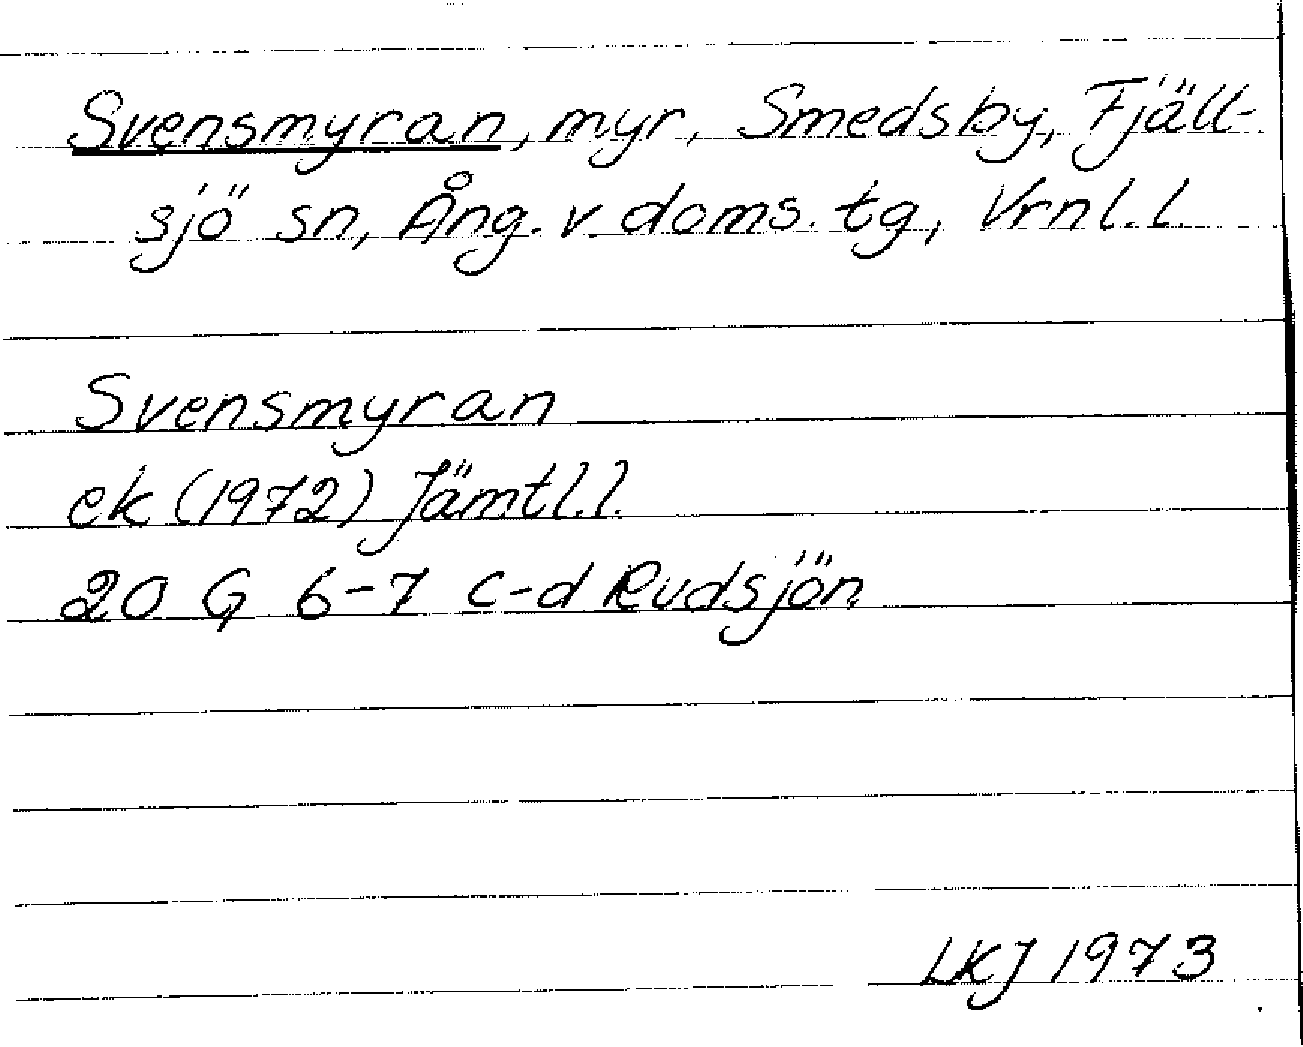 Svensmyran, myr, Smedsby, Fjäll-
sjö sn, Ång. v. doms. tg, Vrnl.l.
Svensmyran
ek (1972) Jämtl.l.
20 G 6-7 c-d Rudsjön
LKJ 1973